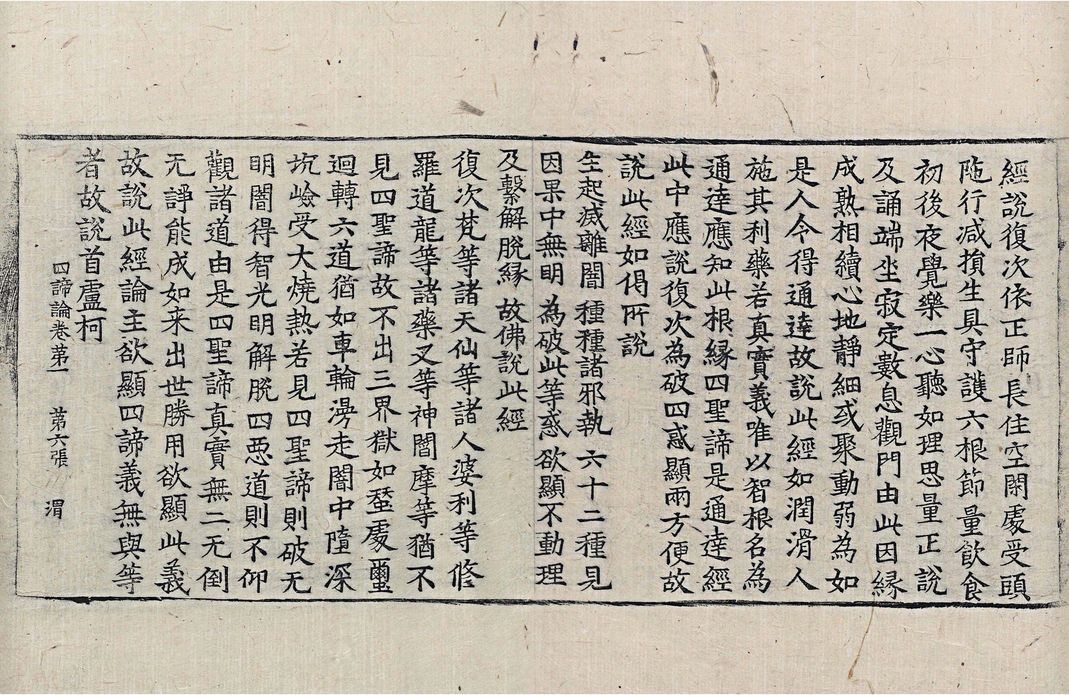 經說復次依正師長住空閑處受頭
陁行减損生具守護六根節量飲食
初後夜覺樂一心聽如理思量正說
及誦端坐寂定數息觀門由此因縁
成熟相續心地靜細或聚動弱為如
是人令得通達故說此經如潤滑人
施其利藥若真實義唯以智根名為
通達應知此根縁四聖諦是通達經
此中應說復次為破四惑顯兩方便故
說此經如偈所說
生起滅離闇 種種諸邪執 六十二種見
因果中無明 為破此等惑 欲顯不動理
及繫解脫縁 故佛說此經
復次梵等諸天仙等諸人婆利等脩
羅道龍等諸藥叉等神閻摩等猶不
見四聖諦故不出三界獄如蝅處璽
迴轉六道猶如車輪澷走闇中墮深
坑嶮受大燒熱若見四聖諦則破无
明闇得智光明解脫四惡道則不仰
觀諸道由是四聖諦真實無二无倒
无諍能成如来出世勝用欲顯此義
故說此經論主欲顯四諦義無與等
者故說首盧柯
四諦論卷苐一 苐六張 渭